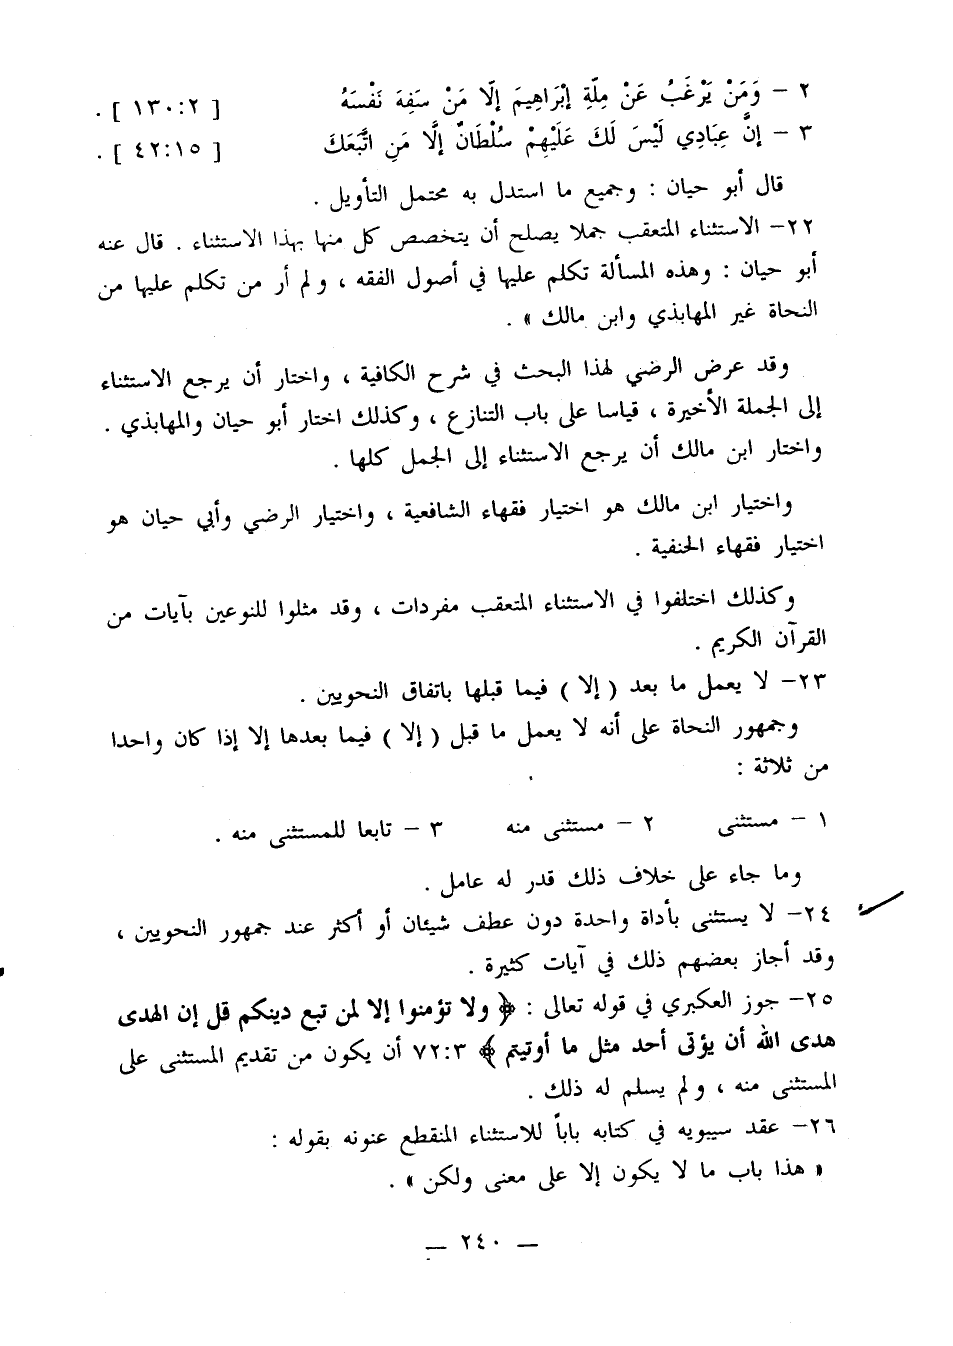 ٢ – وَمَنْ يَرْغَبُ عَنْ مِلَّةِ إِبْرَاهِيمَ إِلَّا مَنْ سَفِهَ نَفْسَهُ [ ١٣٠:٢ ] .
٣ – إِنَّ عِبَادِي لَيْسَ لَكَ عَلَيْهِمْ سُلْطَانٌ إِلَّا مَنِ اتَّبَعَكَ [ ٤٢:١٥ ] .
قال أبو حيان : وجميع ما استدل به محتمل التأويل .
٢٢– الاستثناء المتعقب جملا يصلح أن يتخصص كل منها بهذا الاستثناء . قال عنه
أبو حيان : وهذه المسألة تكلم عليها في أصول الفقه ، ولم أر من تكلم عليها من
النحاة غير المهابذي وابن مالك » .
وقد عرض الرضي لهذا البحث في شرح الكافية ، واختار أن يرجع الاستثناء
إلى الجملة الأخيرة ، قياسا على باب التنازع ، وكذلك اختار أبو حيان والمهابذي .
واختار ابن مالك أن يرجع الاستثناء إلى الجمل كلها .
واختيار ابن مالك هو اختيار فقهاء الشافعية ، واختيار الرضي وأبي حيان هو
اختيار فقهاء الحنفية .
وكذلك اختلفوا في الاستثناء المتعقب مفردات ، وقد مثلوا للنوعين بآيات من
القرآن الكريم .
٢٣– لا يعمل ما بعد ( إلا ) فيما قبلها باتفاق النحويين .
وجمهور النحاة على أنه لا يعمل ما قبل ( إلا ) فيما بعدها إلا إذا كان واحدا
من ثلاثة :
١ – مستثنى ٢ – مستثنى منه ٣ – تابعا للمستثنى منه .
وما جاء على خلاف ذلك قدر له عامل .
٢٤– لا يستثنى بأداة واحدة دون عطف شيئان أو أكثر عند جمهور النحويين ،
وقد أجاز بعضهم ذلك في آيات كثيرة .
٢٥– جوز العكبري في قوله تعالى : ﴿ ولا تؤمنوا إلا لمن تبع دينكم قل إن الهدى
هدى الله أن يؤتى أحد مثل ما أوتيتم ﴾ ٧٢:٣ أن يكون من تقديم المستثنى على
المستثنى منه ، ولم يسلم له ذلك .
٢٦– عقد سيبويه في كتابه باباً للاستثناء المنقطع عنونه بقوله :
« هذا باب ما لا يكون إلا على معنى ولكن » .
— ٢٤٠ —